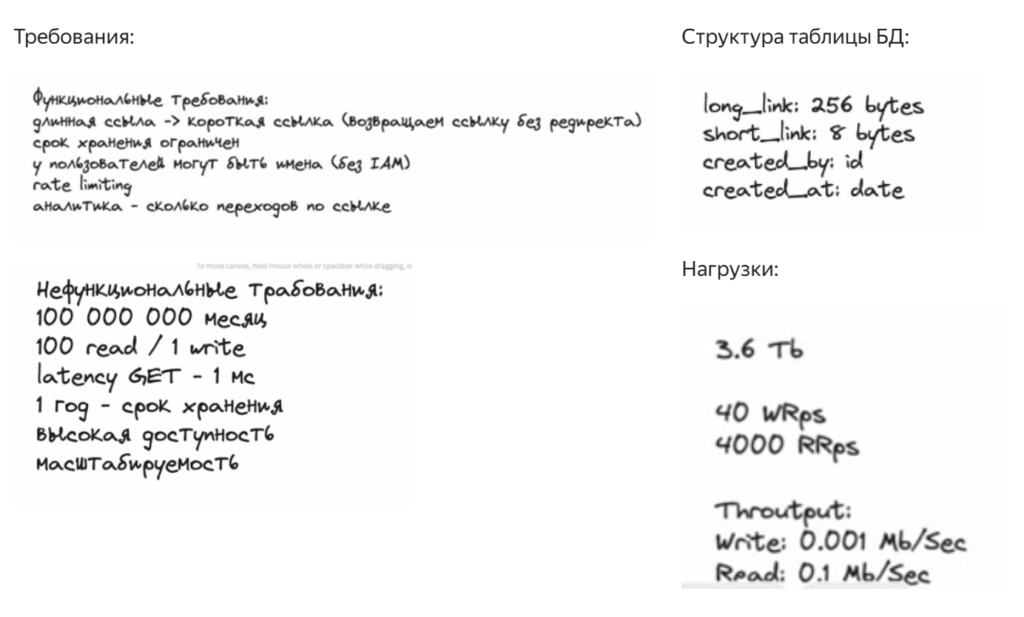 Требования:
Функциональные требования:
длинная ссыла -> короткая ссылка (возвращаем ссылку без редиректа)
срок хранения ограничен
у пользователей могут быть имена (без IAM)
rate limiting
аналитика - сколько переходов по ссылке
To move canvas, hold mouse wheel or spacebar while dragging, o
Нефункциональные трабования:
100 000 000 месяц
100 read / 1 write
latency GET - 1 мс
1 год - срок хранения
высокая доступность
масштабируемость
Структура таблицы БД:
long_link: 256 bytes
short_link: 8 bytes
created_by: id
created_at: date
Нагрузки:
3.6 Tb
40 WRps
4000 RRps
Throutput:
Write: 0.001 Mb/Sec
Read: 0.1 Mb/Sec